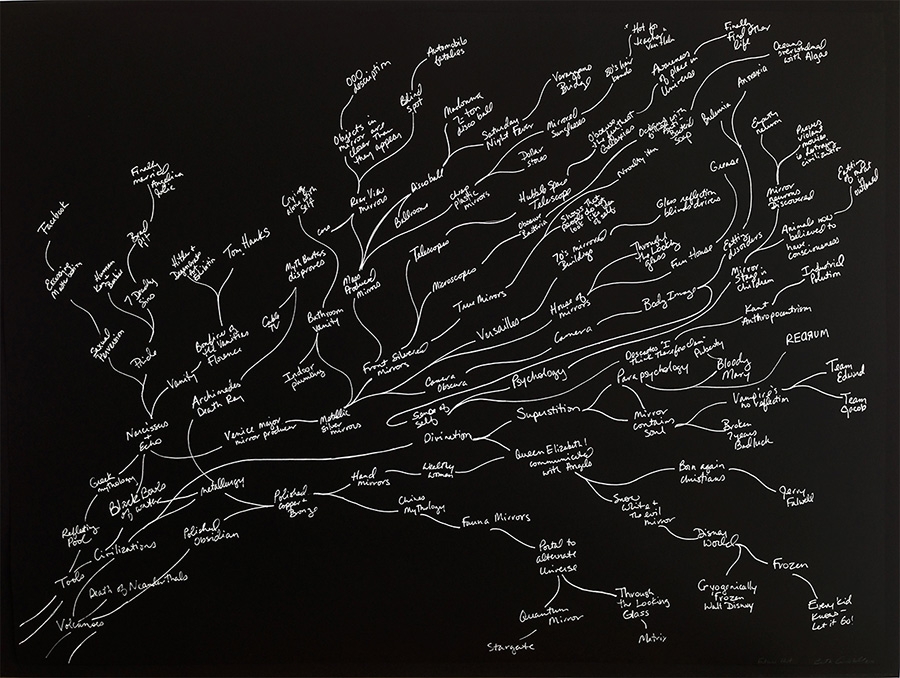 Hot for
teacher
Van Halen
Finally
find other
life
Oceans
overwhelmed
with Algae
Automobile
fatalities
80's hair
bands
Awareness
of place in
Universe
Anorexia
ODD
description
Blind
spot
Verrazano
Bridge
Madonna
2-ton
disco ball
Bulimia
Saturday
Night Fever
Mirrored
Sunglasses
Objects in
mirror are
closer than
they appear
Dollar
stores
Observe
the furthest
Galaxies
Obsessed with
Novelty item
Mirror
neurons
Discovered
Finally
married
Angelina
Jolie
Brad
Pitt
Disco ball
Cheap
plastic
mirrors
Grease
Facebook
Rear View
mirrors
cars
Ballroom
Hubble Space
Telescope
Glass reflection
blinds drivers
Animals now
believed to
have
consciousness
Tom Hanks
Telescopes
Observe
Bacteria
70's mirrored
Buildings
Through
the Looking
glass
Eating
disorders
Excessive
Human
7 Deadly
Sins
Myth Busters
Disproves
Mass
Produced
Mirrors
Microscopes
True Mirrors
House of
mirrors
Fun House
Mirror
Stage in
Children
Industrial
Pollution
Body Image
Kant
Anthropocentrism
Pride
Bonfire of
the Vanities
Florence
Bathroom
vanity
Versailles
Camera
Front Silvered
mirrors
Descartes "I
think therefore I am"
Puberty
REDRUM
Vanity
Indoor
plumbing
Psychology
Parapsychology
Bloody
Mary
Team
Edward
Archimedes
Death Ray
Camera
Obscura
Vampires
no reflection
Team
Jacob
Narcissus
+
Echo
Venice major
mirror producer
Metallic
silver
mirrors
Sense of
self
Superstition
Mirror
contains
soul
Broken
7 years
Bad luck
Divination
Greek
mythology
Black Bowls
of water
Metallurgy
Polished
Copper +
Bronze
Hand
mirrors
Wealthy
women
Queen Elizabeth I
communicated
with Angels
Born again
christians
Jerry
Falwell
Reflecting
Pool
Polished
Obsidian
Chinese
Mythology
Fauna Mirrors
Snow
White +
the evil
mirror
Civilizations
Disney
World
Tools
Portal to
alternate
Universe
Frozen
Death of Neanderthals
Cryogenically
Frozen
Walt Disney
Through
the Looking
Glass
Every kid
knows -
Let it Go!
Volcanoes
Quantum
Mirror
Matrix
Stargate